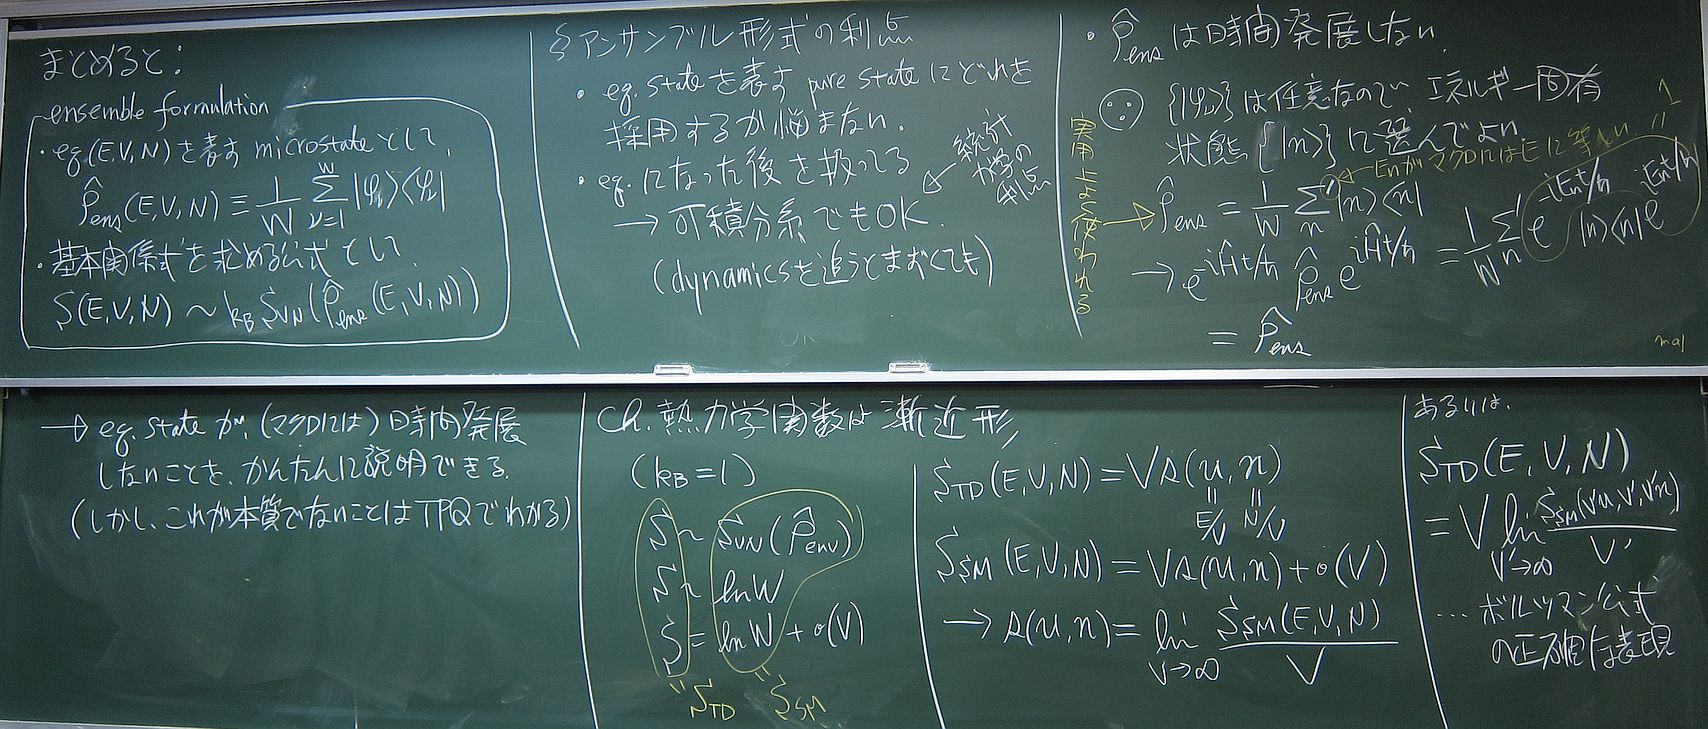 まとめると:
ensemble formulation
・eq.(E,V,N)を表す microstateとして,
ρ̂ens(E,V,N) ≡ 1/W Σ_{ν=1}^{W} |φν><φν|
・基本関係式を求める公式として,
S(E,V,N) ~ kB SvN(ρ̂ens(E,V,N))
§アンサンブル形式の利点
・eq. stateを表す pure stateにどれを
採用するか悩まない.
・eq.になった後を扱ってる
← 統計力学の利点
→ 可積分系でもOK
(dynamicsを追うとまずくても)
・ρ̂ens は時間発展しない.
{|φν>}は任意なので, エネルギー固有
状態{|n>}に選んでよい.
← EnがマクロにはEに等しい.
実用上よく使われる
→ ρ̂ens = 1/W Σ'_n |n><n|
→ e^{-iĤt/ħ} ρ̂ens e^{iĤt/ħ} = 1/W Σ'_n e^{-iEnt/ħ} |n><n| e^{iEnt/ħ}
1
"
= ρ̂ens
→ eq. stateが, (マクロには)時間発展
しないことを, かんたんに説明できる.
(しかし, これが本質でないことはTPQでわかる)
Ch. 熱力学関数は漸近形
(kB=1)
S ~ SvN(ρ̂env)
S ~ lnW
S = lnW + o(V)
" STD
" SSM
STD(E,V,N) = Vs(u,n)
" "
E/V N/V
SSM(E,V,N) = Vs(u,n) + o(V)
→ s(u,n) = lim_{V→∞} SSM(E,V,N)/V
あるいは,
STD(E,V,N)
= V lim_{V'→∞} SSM(V'u,V',V'n)/V'
… ボルツマン公式
の正確な表現